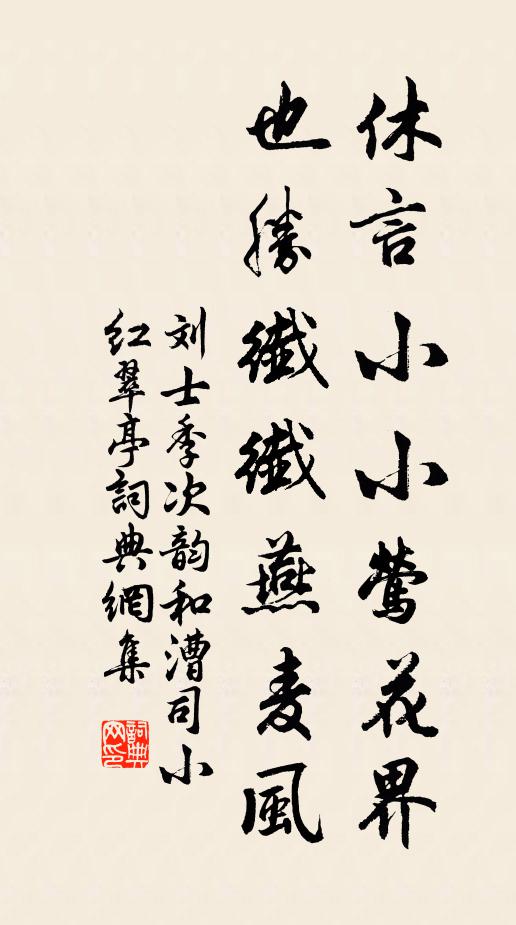 休言小小莺花界
也勝纖纖燕麦風
刘士季次韵和漕司小
红翠亭詞典網集
詞典網印